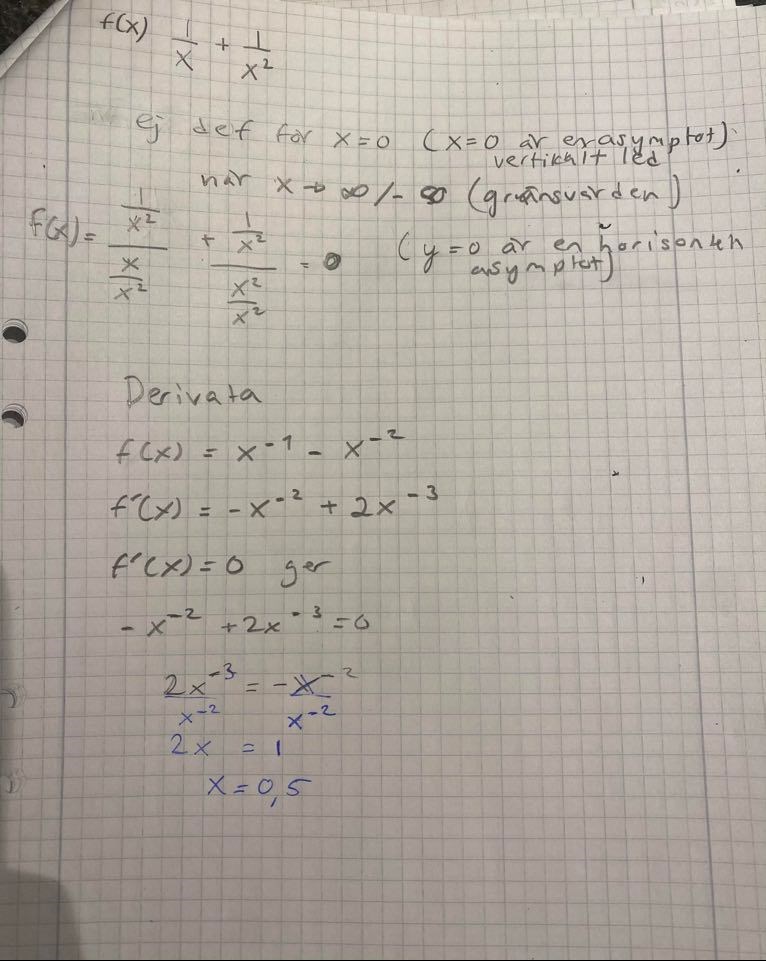 f(x) 1/x + 1/x²
ej def för x=0 (x=0 är en asymptot)
vertikalt led
när x→ ∞/-∞ (gränsvärden)
f(x)= (1/x²)/(x/x²) + (1/x²)/(x²/x²) = 0 (y=0 är en horisonten
asymptot)
Derivata
f(x) = x⁻¹ - x⁻²
f'(x) = -x⁻² + 2x⁻³
f'(x)=0 ger
-x⁻² +2x⁻³=0
2x⁻³/x⁻² = -x⁻²/x⁻²
2x = 1
x=0,5